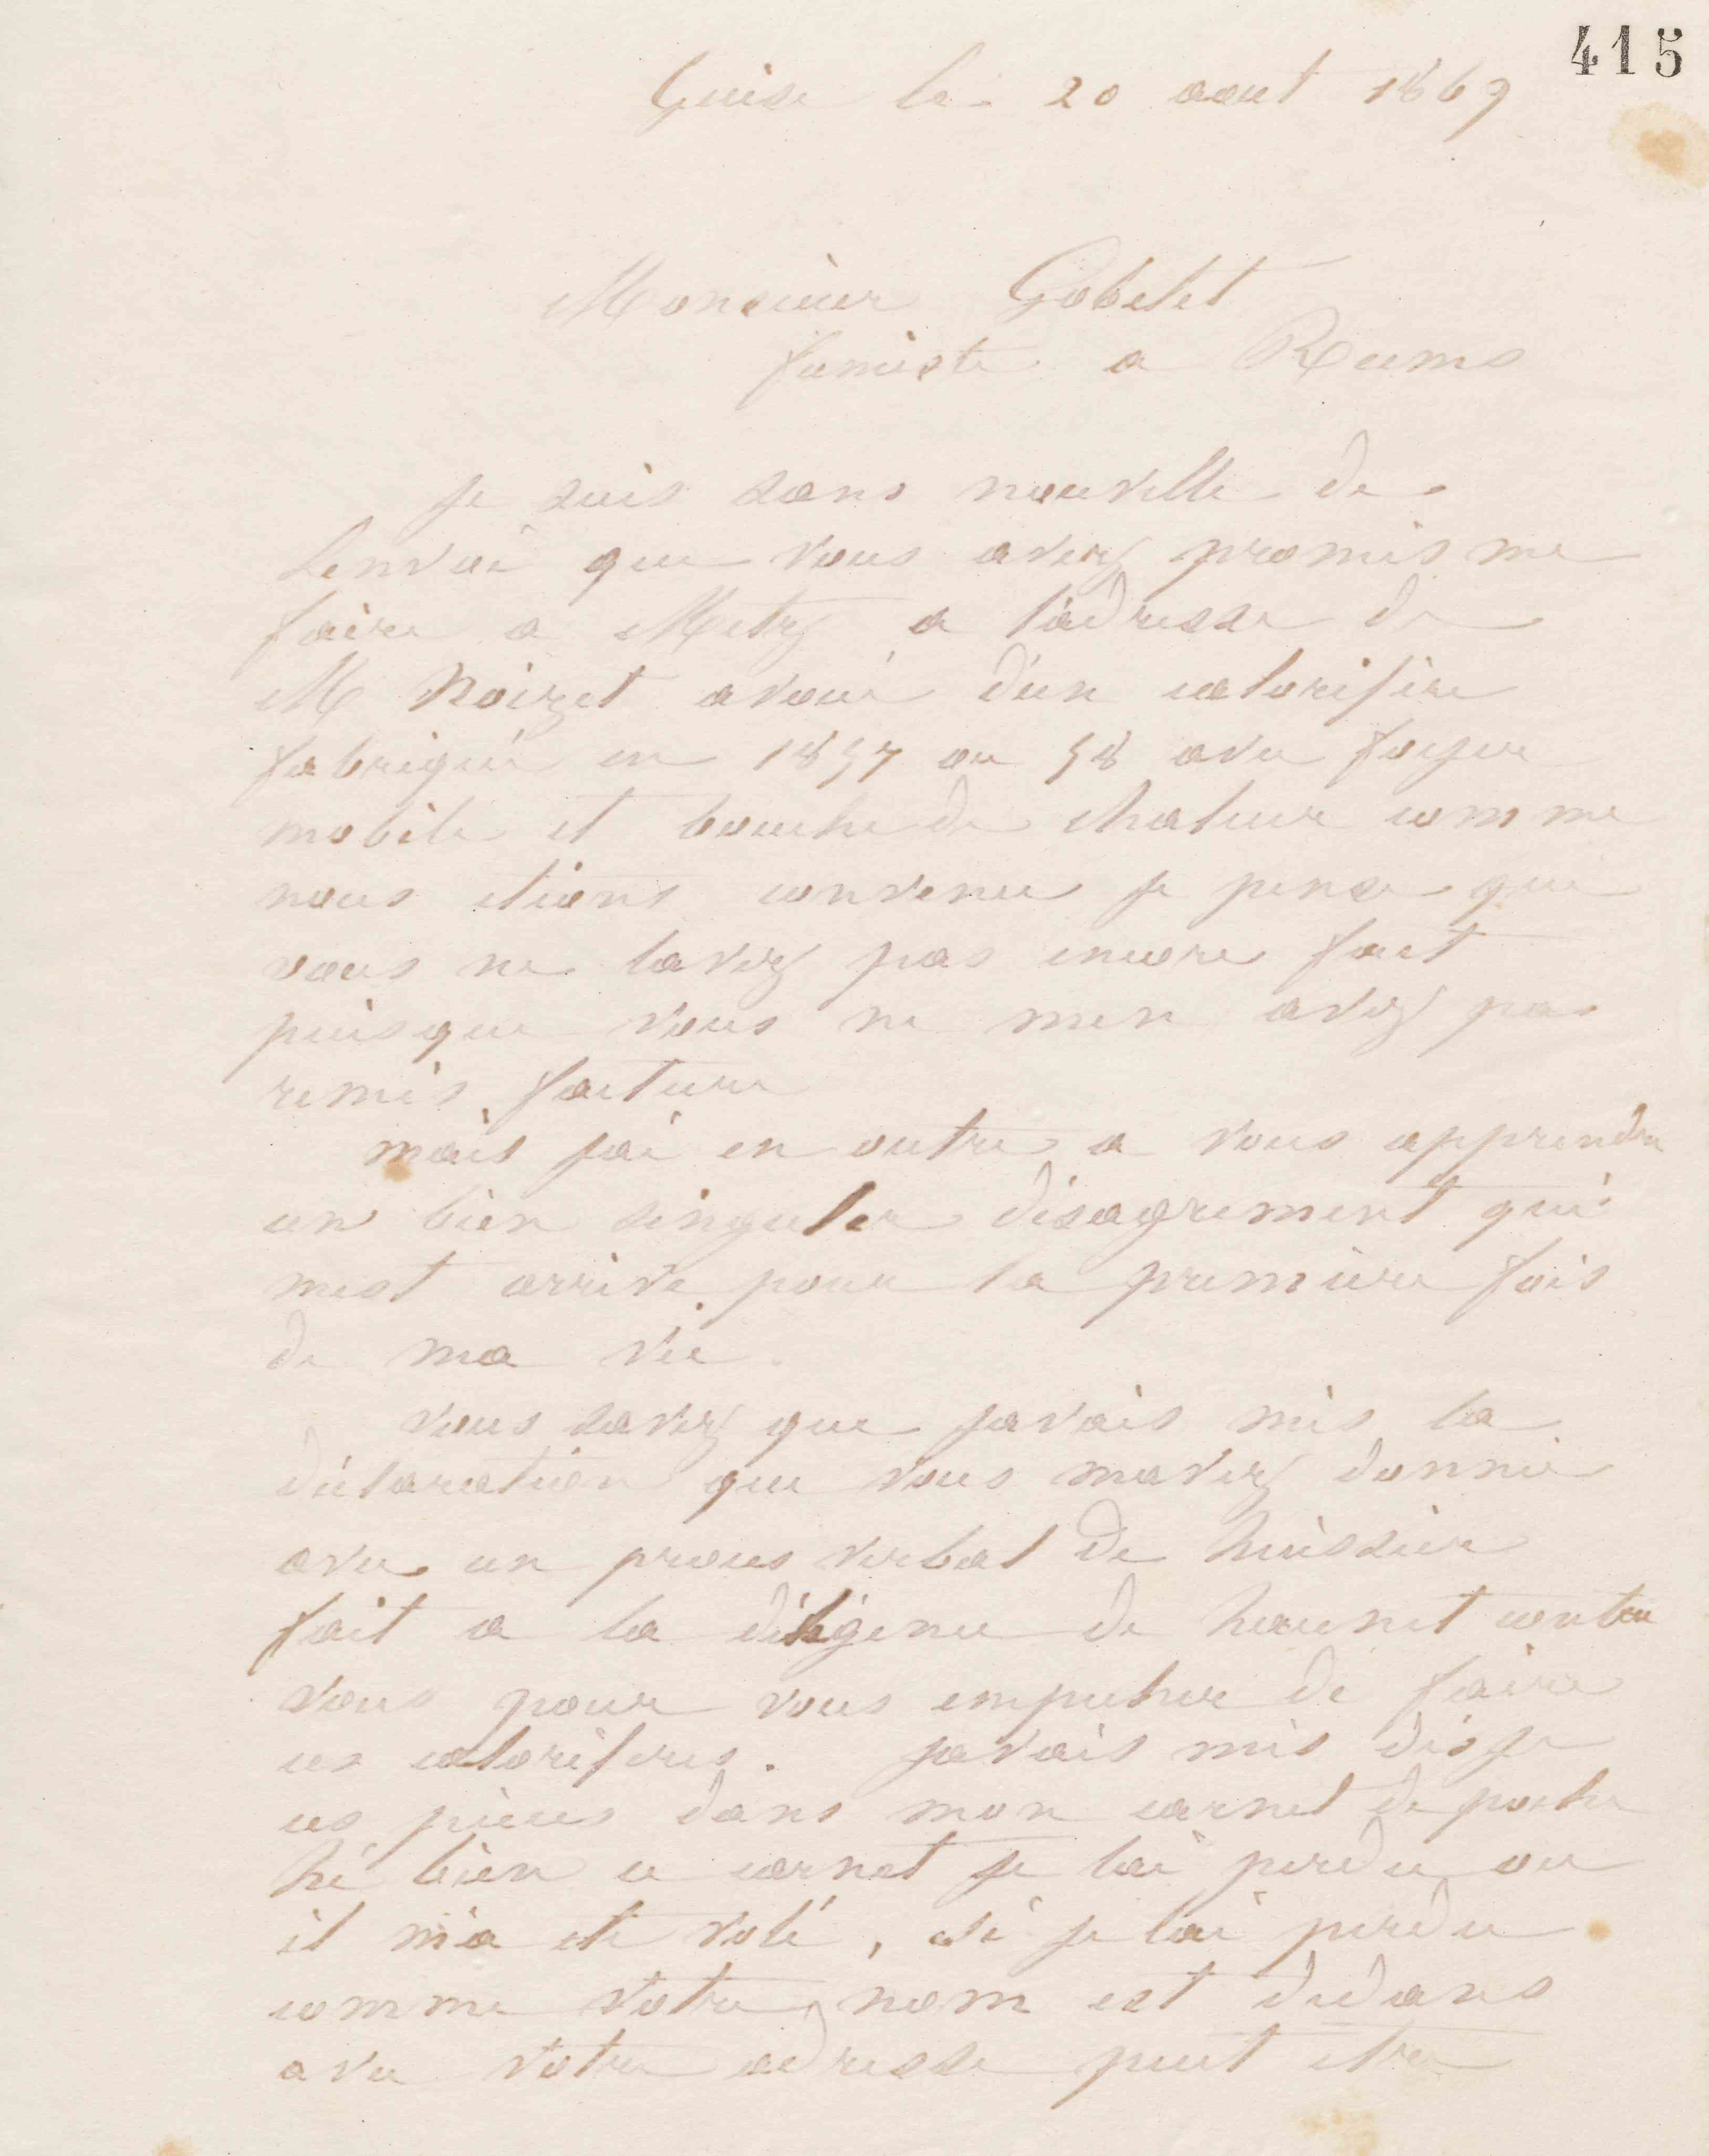 415
Guise le 20 aout 1869
Monsieur Gobelet
fumiste a Reims
je suis sans nouvelle de
lenvoi que vous avez promis me
faire a Metz a l'adresse de
M Noizet avoué d'un calorifère
fabriqué en 1857 ou 58 avec foyer
mobile et bouche de chaleur comme
nous etions convenu je pense que
vous ne lavez pas encore fait
puisque vous ne men avez pas
remis facture
mais jai en outre a vous apprendre
un bien singulier désagrement qui
mest arrivé pour la première fois
de ma vie
vous savez que javais mis la
déclaration que vous mavez donnée
avec un proces verbal de huissier
fait a la diligence de heurnet contre
vous pour vous empecher de faire
ces caloriferes. javais mis dis je
ces pièces dans mon carnet de poche
hé bien ce carnet je lai perdu ou
il m'a eté volé, si je lai perdu
comme votre nom est dedans
avec votre adresse peut etre